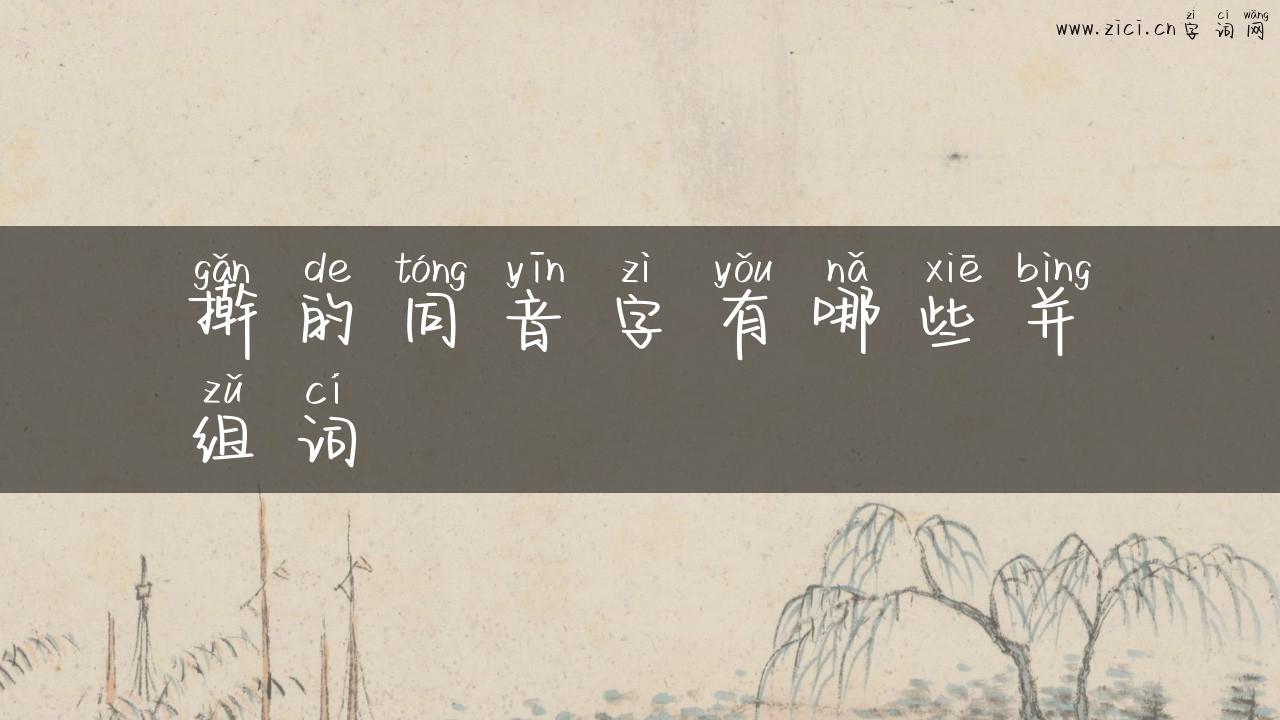 zì cí wǎng
www.zici.cn 字词网
gǎn de tóng yīn zì yǒu nǎ xiē bìng
擀的同音字有哪些并
zǔ cí
组词